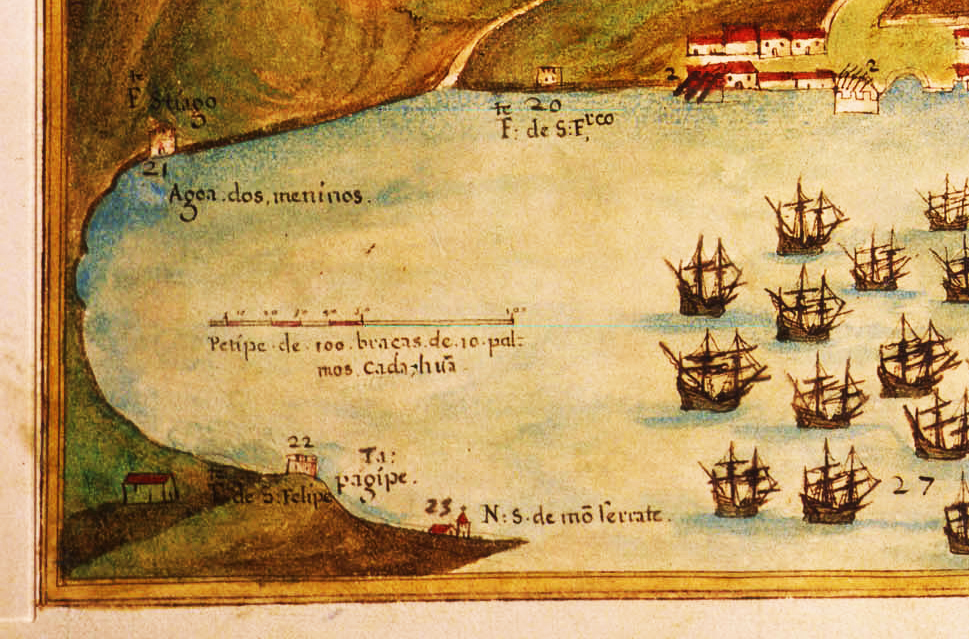 F^te Stiago
21
Agoa dos, meninos.
2
2
20
F^te: de S: Fr^co
10 20 30 40 50 100
Petipe de 100 braças de 10 pal:
mos, Cada hũa
22
F^te de S. Felipe
Ta:
pagipe.
23
N: S. de mõ serrate.
27